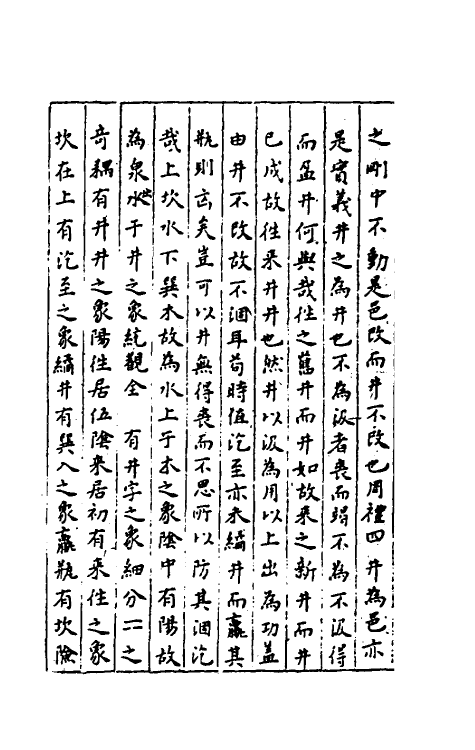 之剛中不動是邑改而井不改也周禮四井為邑亦
是實義井之為井也不為汲者喪而竭不為不汲得
而盈井何與哉徃之舊井而井如故來之新井而井
已成故徃來井井也然井以汲為用以上出為功盖
由井不改故不涸耳苟時值汔至亦未繘井而羸其
瓶則玄矣豈可以井無得喪而不思所以防其涸汔
哉上坎水下巽木故為水上于木之象陰中有陽故
為泉水出于井之象統觀全 有井字之象細分一二之
奇耦有井井之象陽徃居伍陰來居初有來徃之象
坎在上有汔至之象繘井有巽入之象羸瓶有坎險